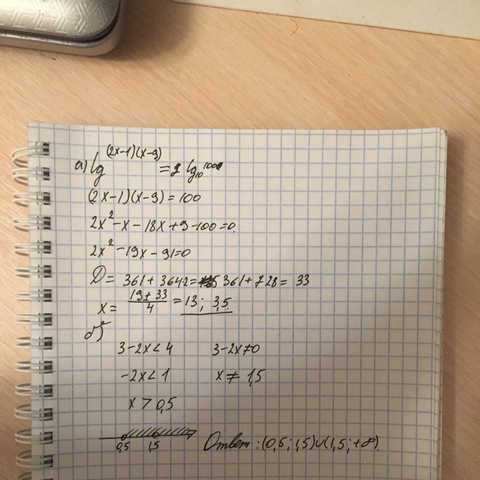 а) lg (2x-1)(x-9) = lg₁₀ 100
(2x-1)(x-9)=100
2x²-x-18x+9-100=0.
2x²-19x-91=0
D= 361+364·2= 361+728= 33
x= (19±33)/4 = 13; 3,5
б)
3-2x<4 3-2x≠0
-2x<1 x≠ 1,5
x > 0,5
0,5 1,5 Ответ: (0,5; 1,5)∪(1,5; +∞)